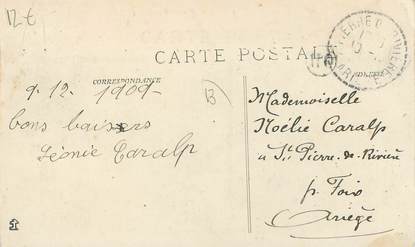 12 €
CARTE POSTALE
CORRESPONDANCE
ADRESSE
9-12-1909-
bons baisers
Léonie Caralp
B
Mademoiselle
Noélie Caralp
a St. Pierre-de-Rivière
pr Foix
Ariège